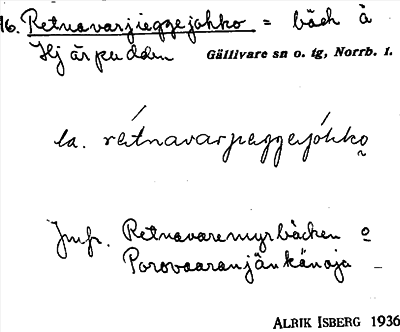 16. Retnavarjieggejokko = bäck å
Hjärpudden Gällivare sn o. tg, Norrb. l.
la. rétnavarjieggejóhko̰
Jmfr. Retnavaremyrbäcken o
Porovaaranjänkänoja –
ALRIK ISBERG 1936